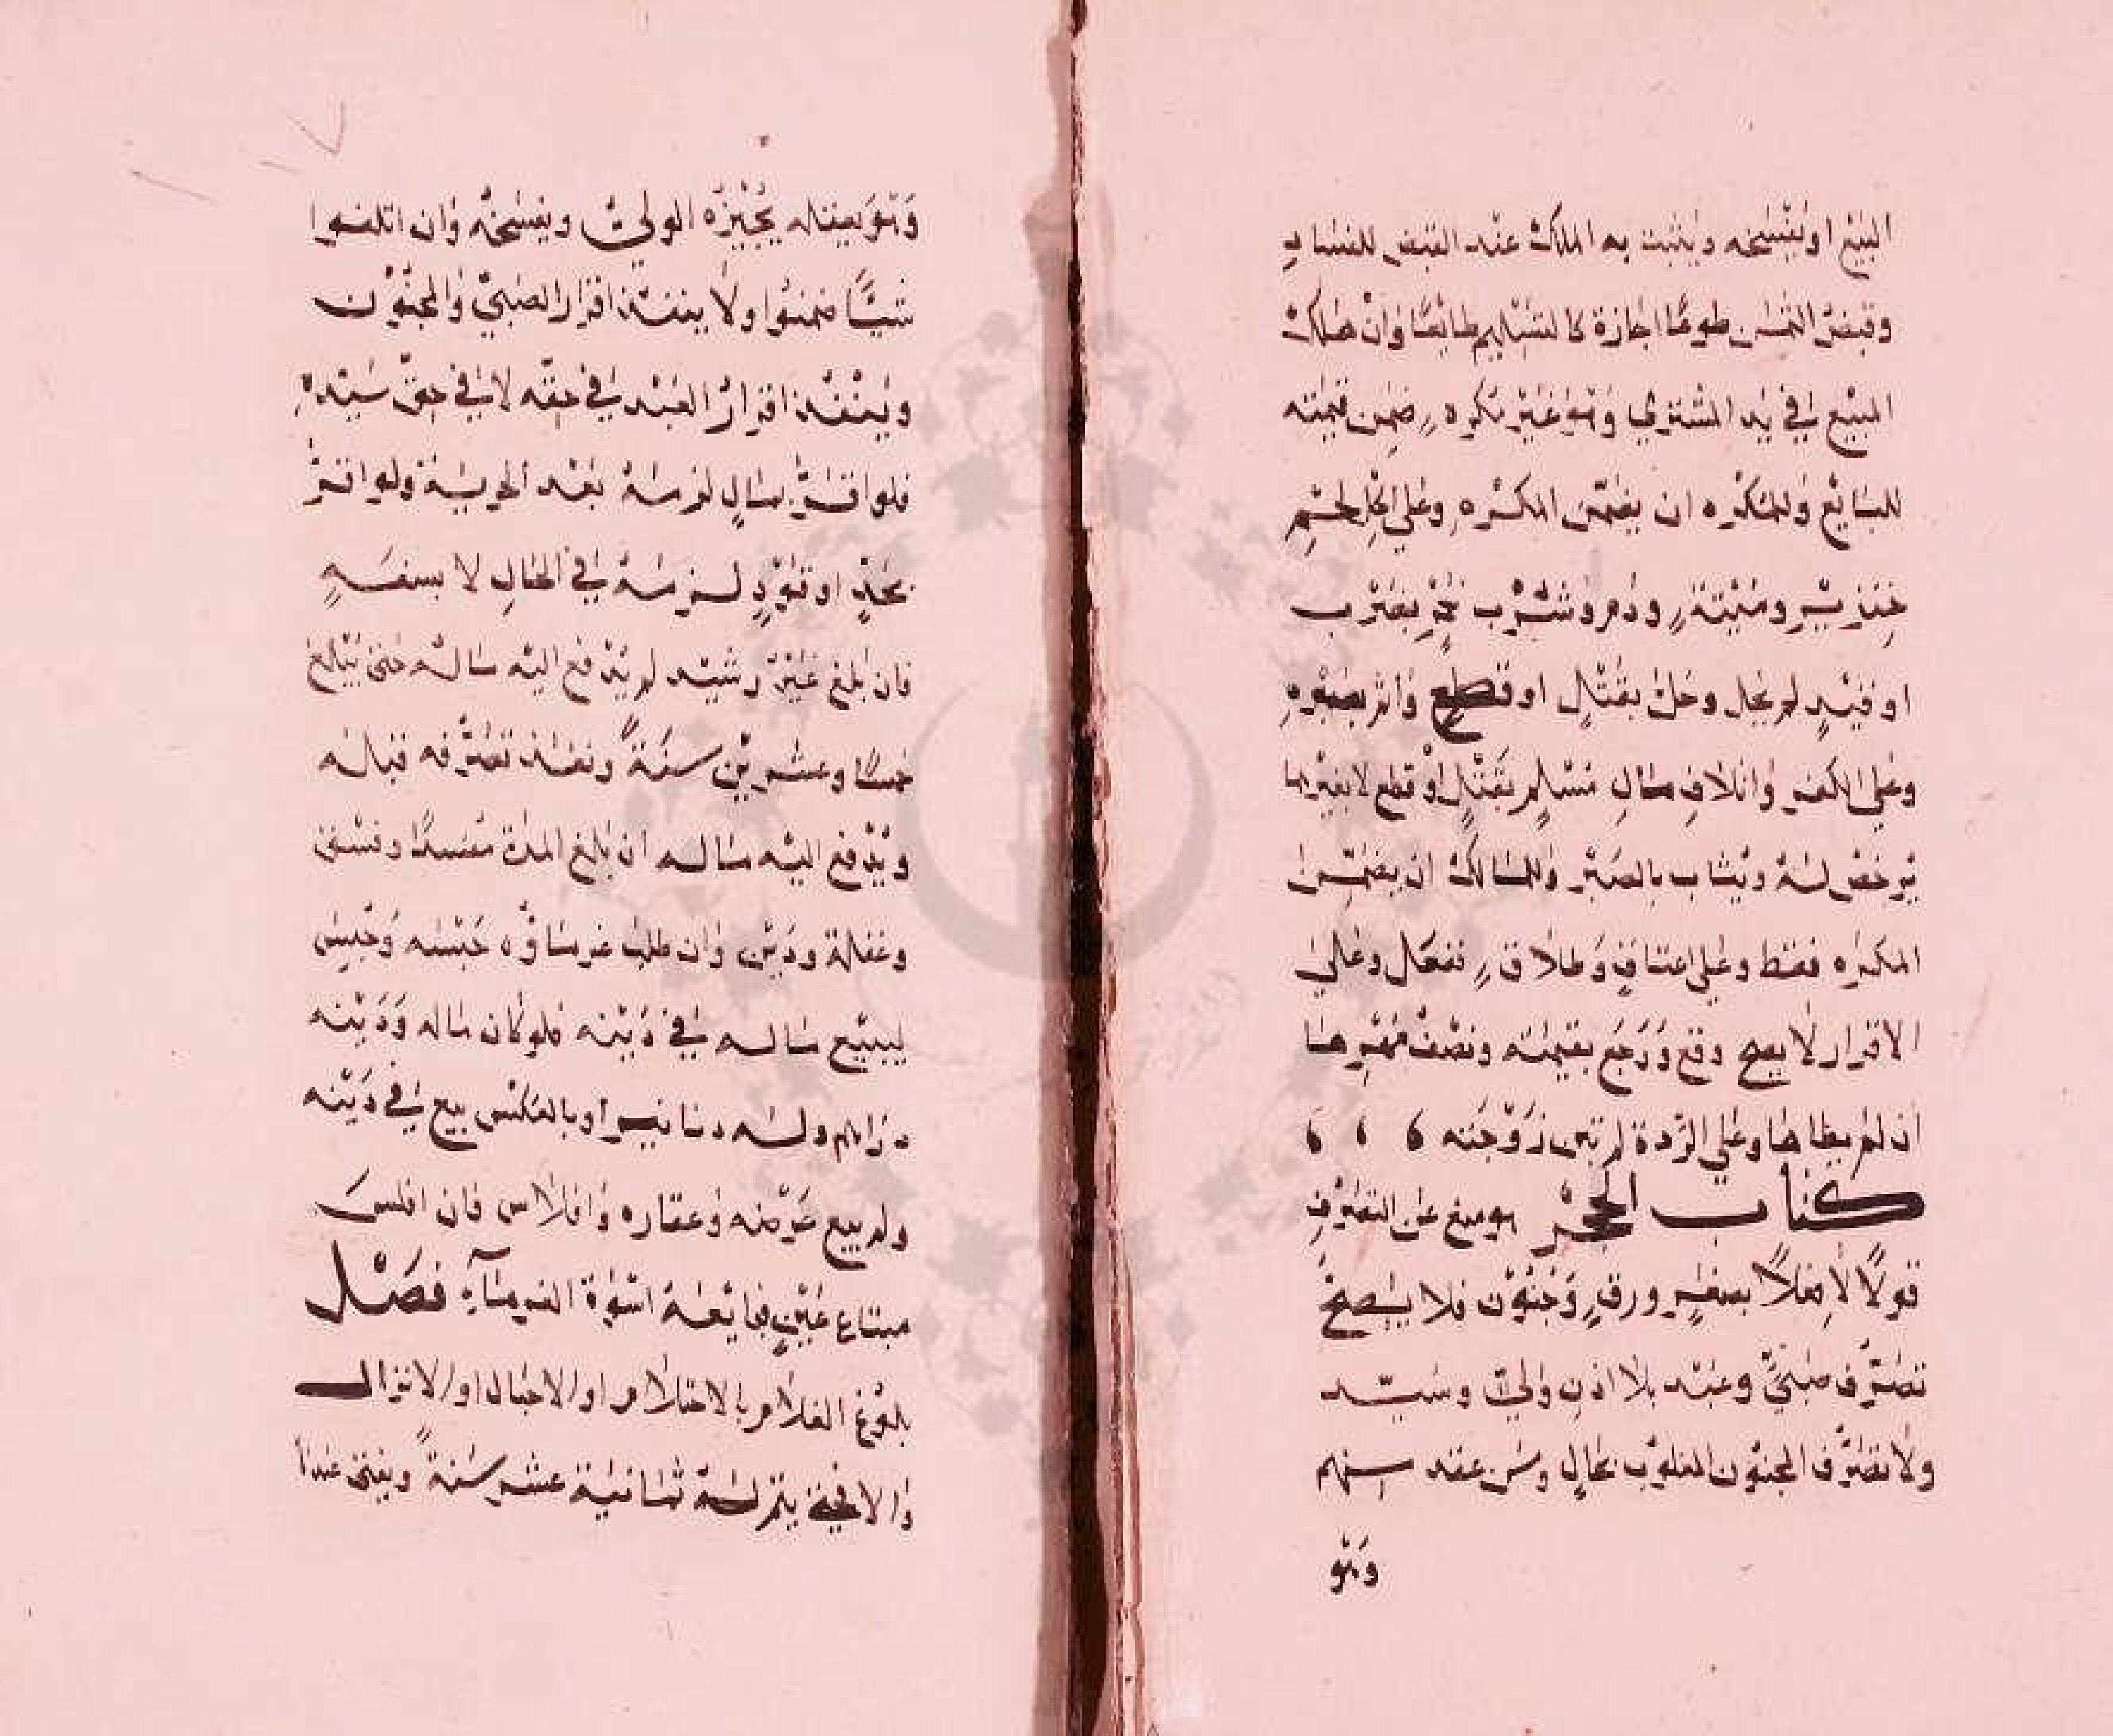 البيع او يفسخه ويثبت به الملك عند القبض للفساد
وقبض الثمن طوعا اجازة كالتسليم طائعا وان هلك
المبيع في يد المشتري وهو غير مكره ضمن قيمته
للبائع وللمكره ان يضمن المكره وعلي اكل لحم
خنزير وميتة ودم وشرب خمر بضرب
او قيد لم يحل وحل بقتل او قطع واثم بصبره
وعلي الكفر واتلاف مال مسلم بقتل او قطع لا بغيرهما
يرخص له ويثاب بالصبر وللمالك ان يضمن
المكره فقط وعلي اعتاق وطلاق ففعل وعلي
الاقرار لا يصح وقع ورجع بقيمته ونصف مهرها
ان لم يطاها وعلي الردة لم تبن زوجته
كتاب الحجر هو منع عن التصرف
قولا لا فعلا بصغر ورق وجنون فلا يصح
تصرف صبي وعبد بلا اذن ولي وسيد
ولا تصرف المجنون المغلوب بحال ومن عقد منهم
وهو
وهو يعقله يجيزه الولي ويفسخه وان اتلفوا
شيئا ضمنوا ولا ينفذ اقرار الصبي والمجنون
وينفذ اقرار العبد في حقه لا في حق سيده
فلو اقر بمال لزمه بعد الحرية ولو اقر
بحد او قود لزمه في الحال لا بسفه
فان بلغ غير رشيد لم يدفع اليه ماله حتى يبلغ
خمسا وعشرين سنة ونفذ تصرفه قبله
ويدفع اليه ماله ان بلغ المدة مفسدا وفسق
وغفلة ودين وان طلب غرماؤه حبسه وحبس
ليبيع ماله في دينه فلو كان ماله ودينه
دراهم وله دنانير او بالعكس بيع في دينه
ولم يبع عرضه وعقاره وافلاس فان افلس
مبتاع عين فبايعه اسوة الغرماء فصل
بلوغ الغلام بالاحتلام او الاحبال او الانزال
والا فحتى يتم له ثمانية عشر سنة ويفتى عندنا